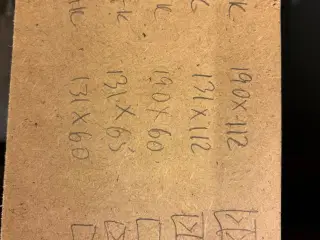 k 190 x 112
131 x 112
k 190 x 60
k 131 x 63
k 131 x 60